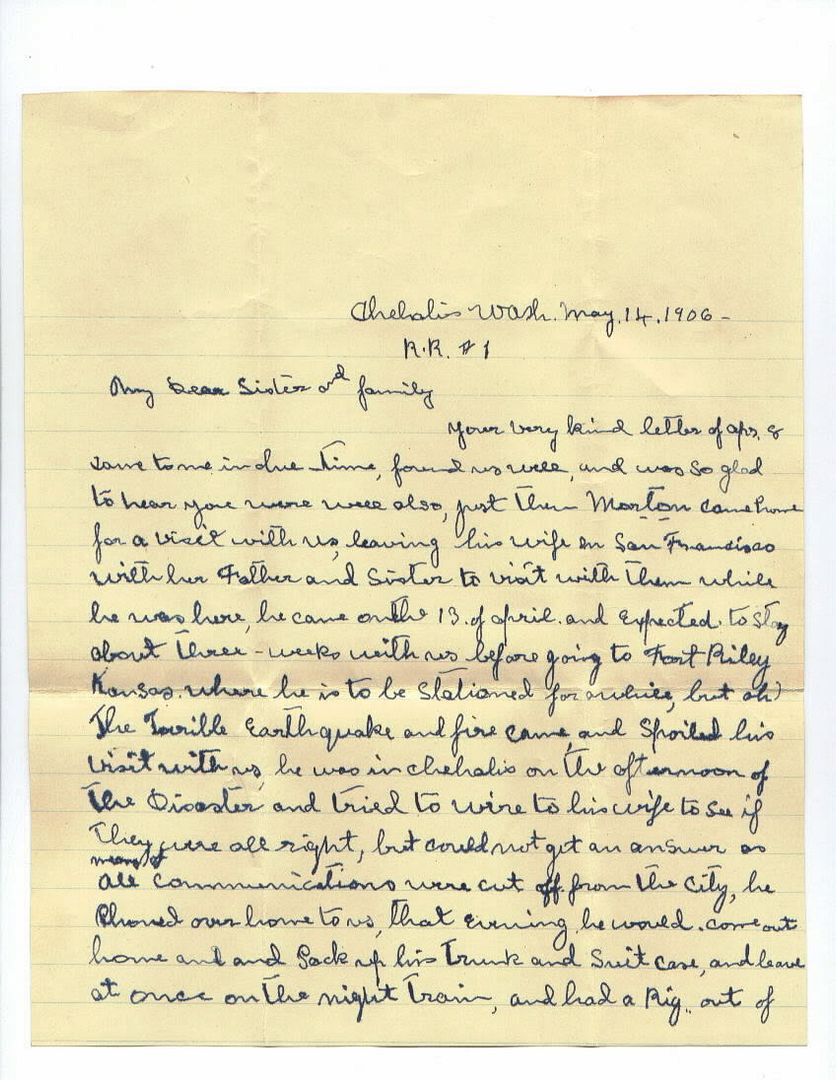 Chehalis Wash. May. 14. 1906-
R.R. #1
My Dear Sister and family
Your very kind letter of apr. 8
came to me in due Time, found us well, and was so glad
to hear you were well also, just Then Morton came home
for a visit with us, leaving his wife in San Francisco
with her Father and Sister to visit with Them while
he was here, he came on the 13. of april. and Expected. to stay
about Three-weeks with us before going to Fort Riley
Kansas. where he is to be Stationed for awhile, but oh)
The Terrible Earthquake and fire came, and Spoiled his
visit with us, he was in chehalis on The afternoon of
The Disaster and tried to wire to his wife to see if
They were all right, but could not get an answer as
means of
all communications were cut off from The City, he
Phoned over home to us, That Evening, he would. come out
home and and Pack up his Trunk and Suit case, and leave
at once on The night Train, and had a Rig. out of